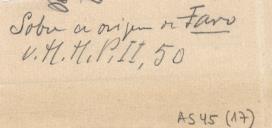 Sobre a origem de Faro
v. M. M. P. II, 50
AS45 (17)